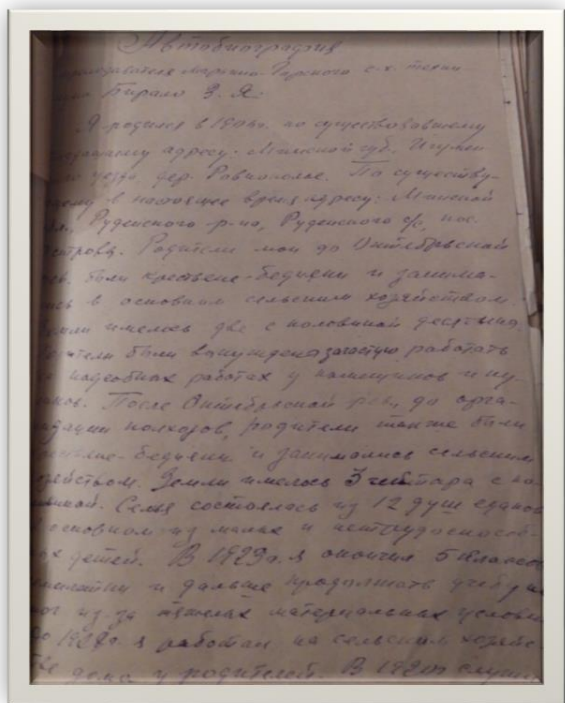 Автобиография
преподавателя Марьино-Горского с-х. техни
Бирало З. Я.
Я родился в 190 г. по существовавшему
адресу: Минской губ. Игумен
уезда дер. Равнополье. По существу-
ему в настоящее время адресу: Минской
Руденского р-на, Руденского с/с, пос.
острова. Родители мои до Октябрьской
были крестьяне-бедняки и занима-
сь в основном сельским хозяйством.
имелось две с половиной десятины.
родители были вынуждены зачастую работать
подсобных работах у помещиков и ку-
ков. После Октябрьской рев. до орга-
низации колхозов, родители также были
крестьяне-бедняки и занимались сельским
хозяйством. Земли имелось 3 гектара с по-
виной. Семья состоялась из 12 душ едоков
основном из малых и нетрудоспособ-
ых детей. В 1923 г. я окончил 5 классов
и дальше продолжать учебу не
мог из за тяжелых материальных услови
до 192 г. я работал на сельским хозяйс-
тве дома у родителей. В 192